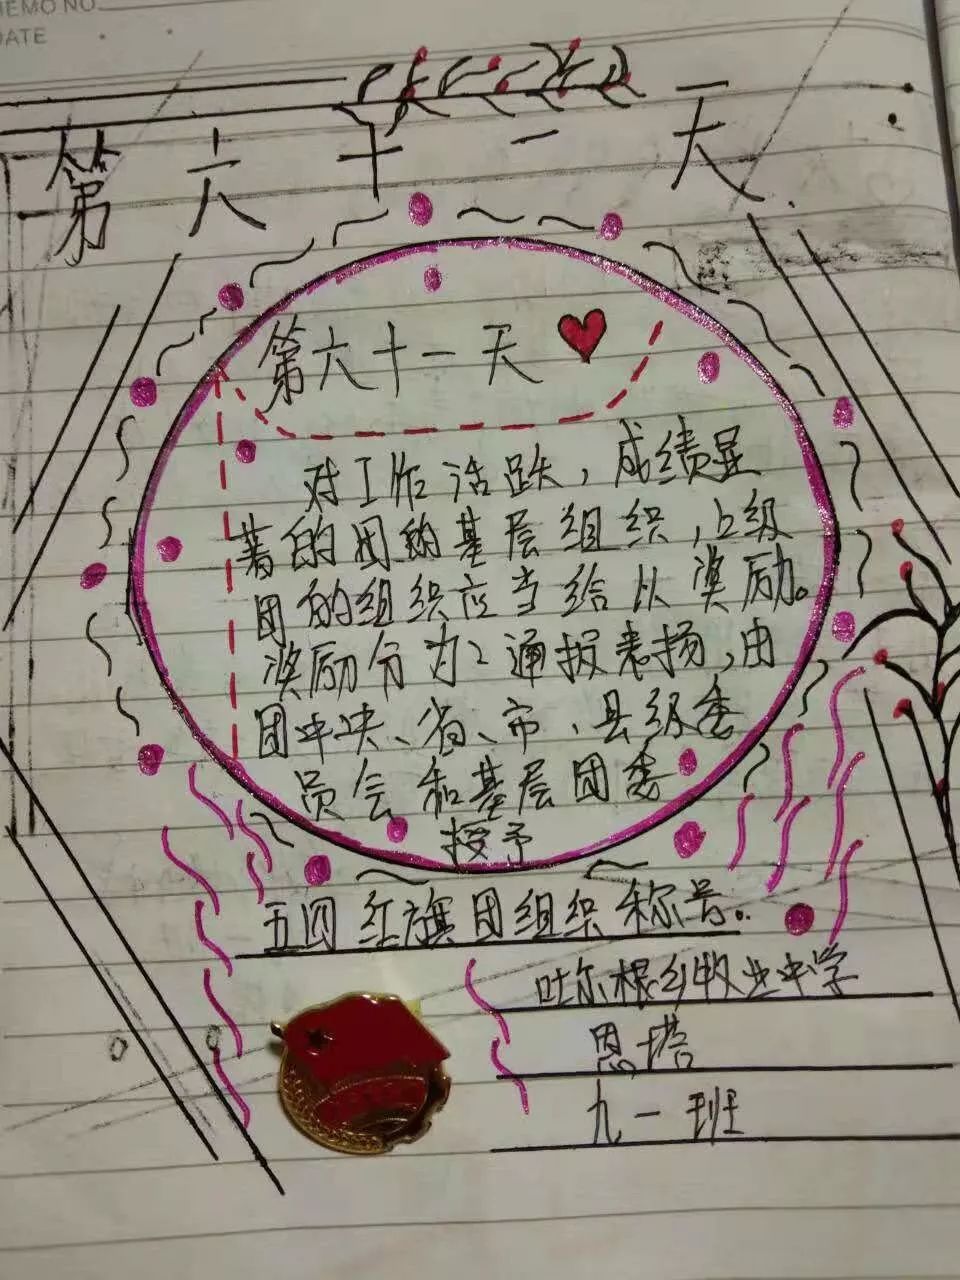 MEMO NO.
DATE
第六十一天
第六十一天
对工作活跃，成绩显
著的团的基层组织，上级
团的组织应当给以奖励。
奖励分为：通报表扬，由
团中央、省、市、县级委
员会和基层团委
授予
五四红旗团组织称号。
吐尔根乡牧业中学
恩塔
九一班